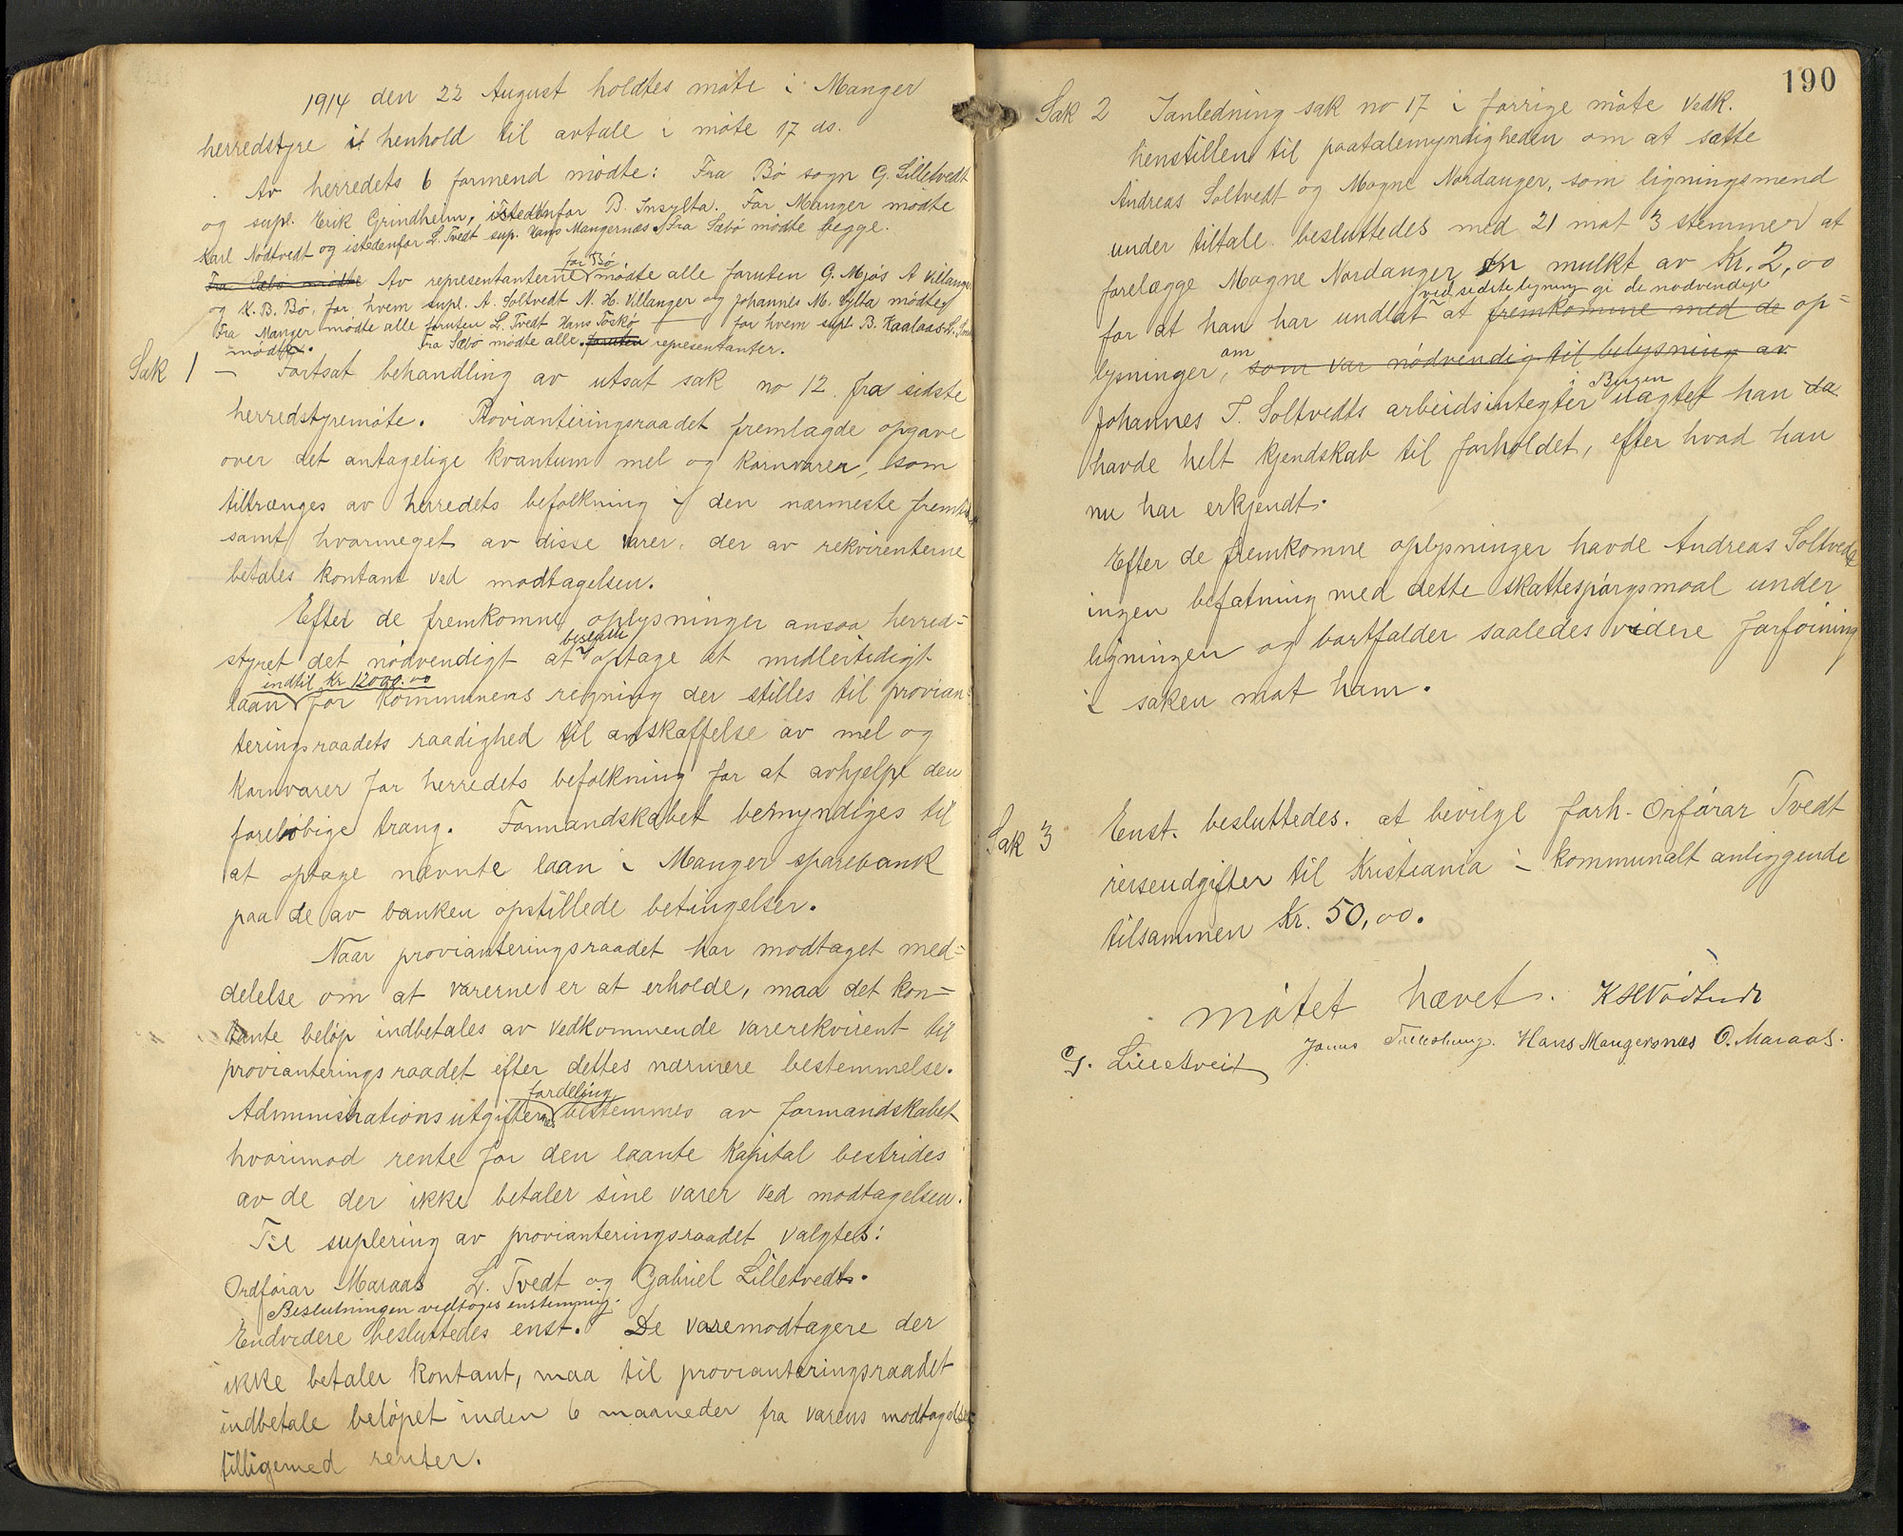 1914 den 22 August holdtes møte i Manger
herredstyre i henhold til avtale i møte 17 ds.
Av herredets 6 formend mødte: Fra Bø sogn G. Lilletvedt
og supl. Erik Grindheim, istedenfor B. Insylta. Før Manger mødte
Karl Nødtvedt og istedenfor L. Tvedt sup. Hans Mangernæs. Fra Sæbø mødte begge.
Fra Sæbø mødte Av representanterne for Bø mødte alle foruten G. Mjøs A Villang
og K. B. Bø, for hvem supl. A. Soltvedt N. H. Villanger og Johannes M. Sylta mødte
Fra Manger mødte alle foruten L. Tvedt Hans Toskø — for hvem supl B. Kaalaas L.
mødte. Fra Sæbø mødte alle foruten representanter.
Sak 1 — Fortsat behandling av utsat sak no 12 fra sidste
herredstyremøte. Provianteringsraadet fremlagde opgave
over det antagelige kvantum mel og kornvarer, som
tiltrænges av herredets befolkning i den nærmeste fremtid
samt hvormeget av disse varer, der av rekvirenterne
betales kontant ved modtagelsen.
Efter de fremkomne oplysninger ansaa herred=
styret det nødvendigt at beslutte at optage et midlertidigt
laan indtil Kr 12000.00 for kommunens regning der stilles til provian=
teringsraadets raadighed til anskaffelse av mel og
kornvarer for herredets befolkning for at avhjelpe den
foreløbige trang. Formandskabet bemyndiges til
at optage nævnte laan i Manger sparebank
paa de av banken opstillede betingelser.
Naar provianteringsraadet har modtaget med=
delelse om at varerne er at erholde, maa det kon=
tante beløp indbetales av vedkommende varerekvirent til
provianteringsraadet efter dettes nærmere bestemmelse.
Administrationsutgifternes fordeling bestemmes av formandskabet
hvorimod rente for den laante kapital bestrides
av de der ikke betaler sine varer ved modtagelsen.
Til suplering av provianteringsraadet valgtes:
Ordfører Maraas L. Tvedt og Gabriel Lilletvedt.
Beslutningen vedtoges enstemmig.
Endvidere besluttedes enst. De varemodtagere der
ikke betaler kontant, maa til provianteringsraadet
indbetale beløpet inden 6 maaneder fra varens modtagelse
tilligemed renter.
190
Sak 2 Ianledning sak no 17 i forrige møte vedk.
henstillen til paatalemyndigheden om at sætte
Andreas Soltvedt og Mogne Nordanger, som ligningsmend
under tiltale besluttedes med 21 mot 3 stemmer at
forelægge Mogne Nordanger en mulkt av Kr. 2,00
for at han har undlat at ved sidste ligning gi de nødvendige fremkomme med de op=
lysninger, om som var nødvendig til belysning av
Johannes T. Soltvedts arbeidsintegter i Bergen uagtet han da
havde helt kjendskab til forholdet, efter hvad han
nu har erkjendt.
Efter de fremkomne oplysninger havde Andreas Soltvedt
ingen befatning med dette skattespørgsmaal under
ligningen og bortfalder saaledes videre forføining
i saken mot ham.
Sak 3 Enst. besluttedes. at bevilge forh. Orifører Tvedt
reiseudgifter til Kristiania i kommunalt anliggende
tilsammen Kr. 50,00.
møtet hævet. K H Nødtvedt
G. Lilletveit Jonas Hans Mangersnæs O. Maraas.